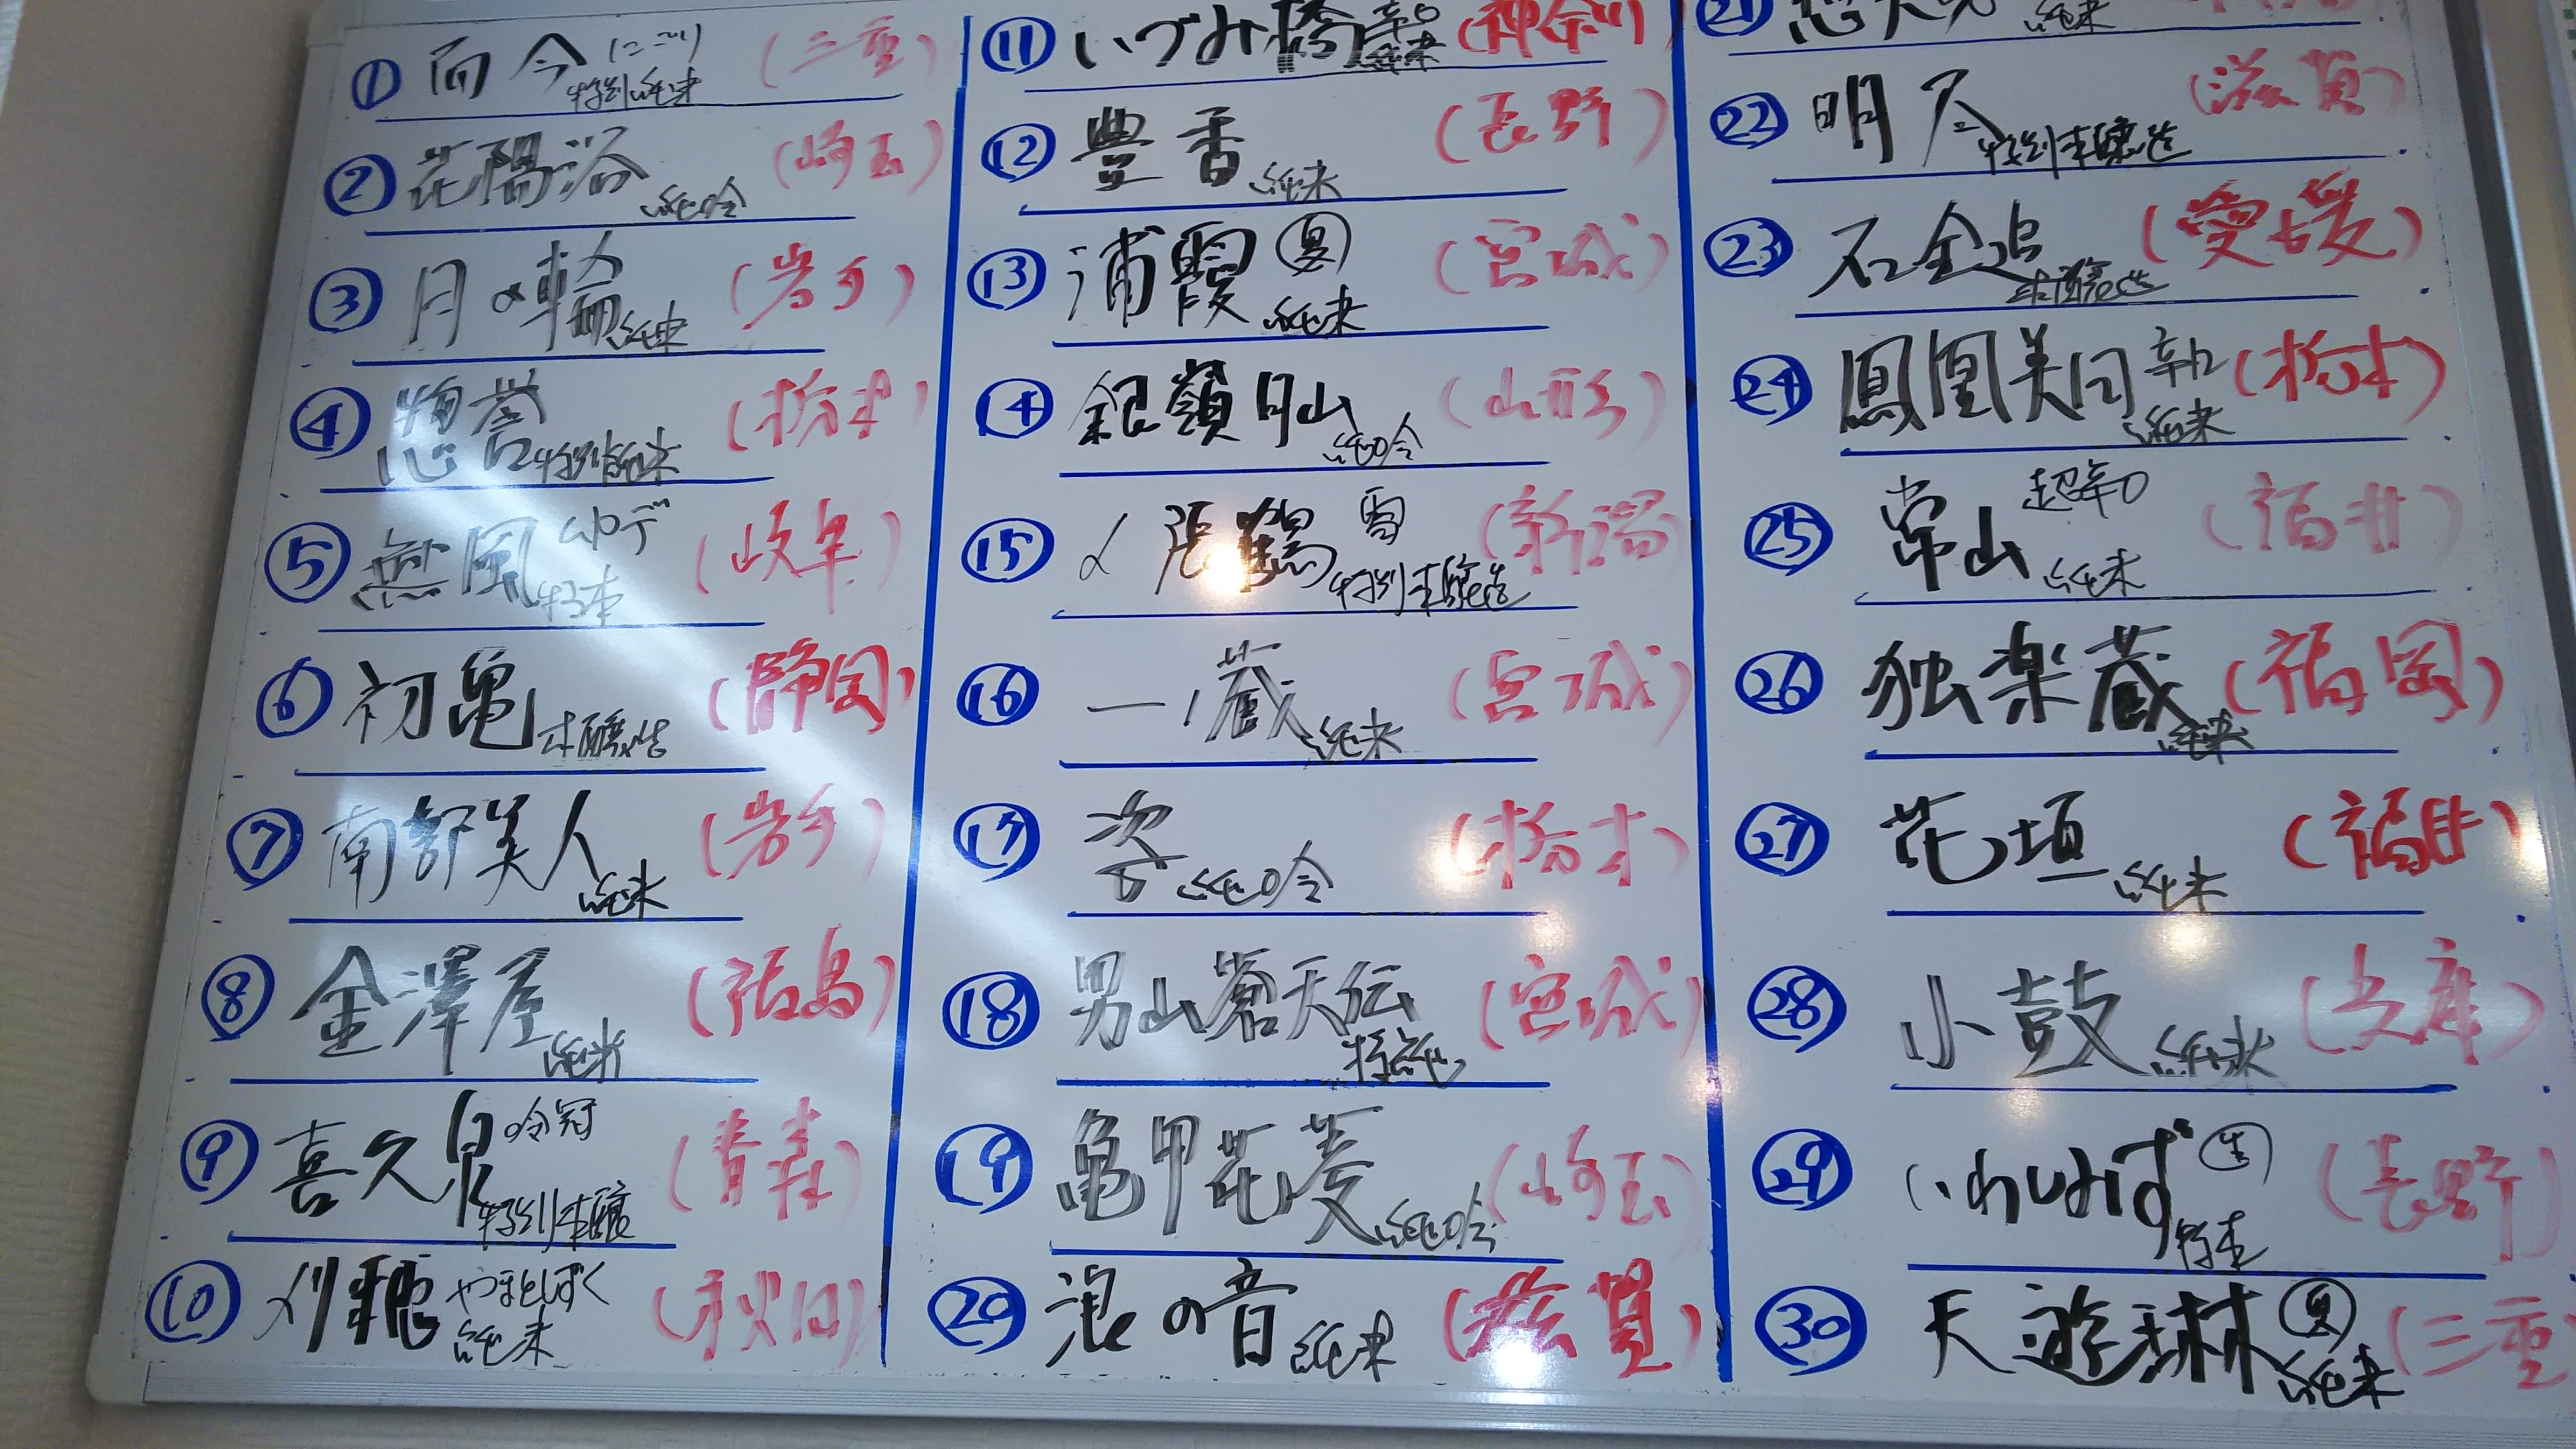 ① 而今 にごり 特別純米 (三重)
② 花陽浴 純吟 (崎玉)
③ 月の輪 純米 (岩手)
④ 惣誉 特別純米 (栃木)
⑤ 無風 ムロデ 特本 (岐阜)
⑥ 初亀 本醸造 (静岡)
⑦ 南部美人 純米 (岩手)
⑧ 金澤屋 純米 (福島)
⑨ 喜久泉 吟冠 特別本醸 (青森)
⑩ 刈穂 やまとしずく 純米 (秋田)
⑪ いづみ橋 辛口 純米 (神奈川)
⑫ 豊香 純米 (長野)
⑬ 浦霞 夏 純米 (宮城)
⑭ 銀嶺月山 純吟 (山形)
⑮ 〆張鶴 雪 特別本醸造 (新潟)
⑯ 一ノ蔵 純米 (宮城)
⑰ 姿 純吟 (栃木)
⑱ 男山蒼天伝 特純 (宮城)
⑲ 亀甲花菱 純吟 (崎玉)
⑳ 浪の音 純米 (滋賀)
㉑ 純米
㉒ 明尽 特別本醸造 (滋賀)
㉓ 石金追 本醸造 (愛媛)
㉔ 鳳凰美田 辛口 純米 (栃木)
㉕ 常山 超辛口 純米 (福井)
㉖ 独楽蔵 純米 (福岡)
㉗ 花垣 純米 (福井)
㉘ 小鼓 純米 (兵庫)
㉙ いわしみず 生 特本 (長野)
㉚ 天遊琳 夏 純米 (三重)